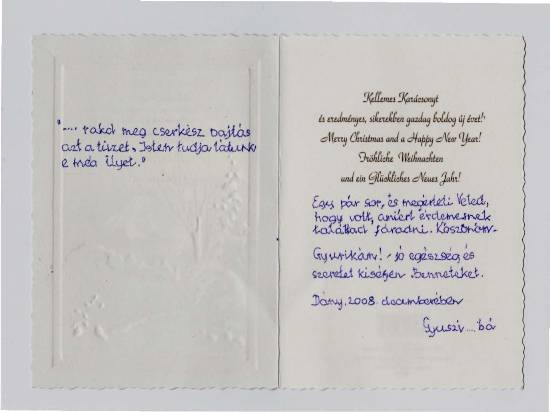 ".... rakd meg cserkész pajtás
azt a tüzet, Isten tudja látunk
e még ilyet."
Kellemes Karácsonyt
és eredményes, sikerekben gazdag boldog új évet!
Merry Christmas and a Happy New Year!
Fröhliche Weihnachten
und ein Glückliches Neues Jahr!
Egy pár sor, és megérteti Veled,
hogy volt, amiért érdemesnek
találtad fáradni. Köszönöm.
Gyurikám! - jó egészség és
szeretet kisérjen Benneteket.
Dány, 2008. decemberében
Gyuszi .... bá